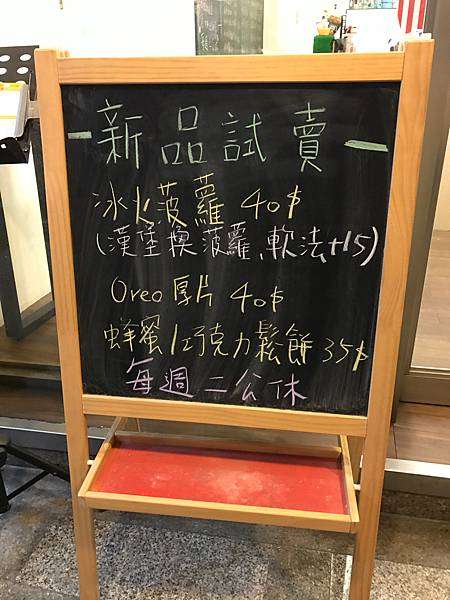 -新品試賣-
冰火菠蘿 40$
(漢堡換菠蘿、軟法+15)
Oreo厚片 40$
蜂蜜/巧克力鬆餅 35$
每週二公休